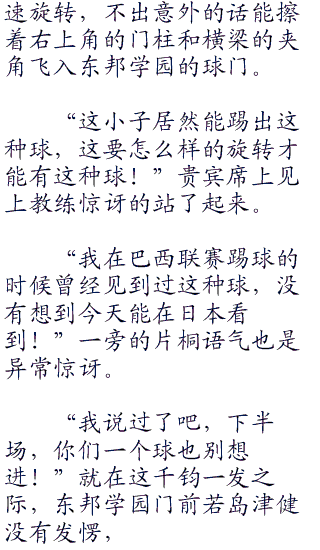 速旋转，不出意外的话能擦
着右上角的门柱和横梁的夹
角飞入东邦学园的球门。
“这小子居然能踢出这
种球，这要怎么样的旋转才
能有这种球！”贵宾席上见
上教练惊讶的站了起来。
“我在巴西联赛踢球的
时候曾经见到过这种球，没
有想到今天能在日本看
到！”一旁的片桐语气也是
异常惊讶。
“我说过了吧，下半
场，你们一个球也别想
进！”就在这千钧一发之
际，东邦学园门前若岛津健
没有发愣，